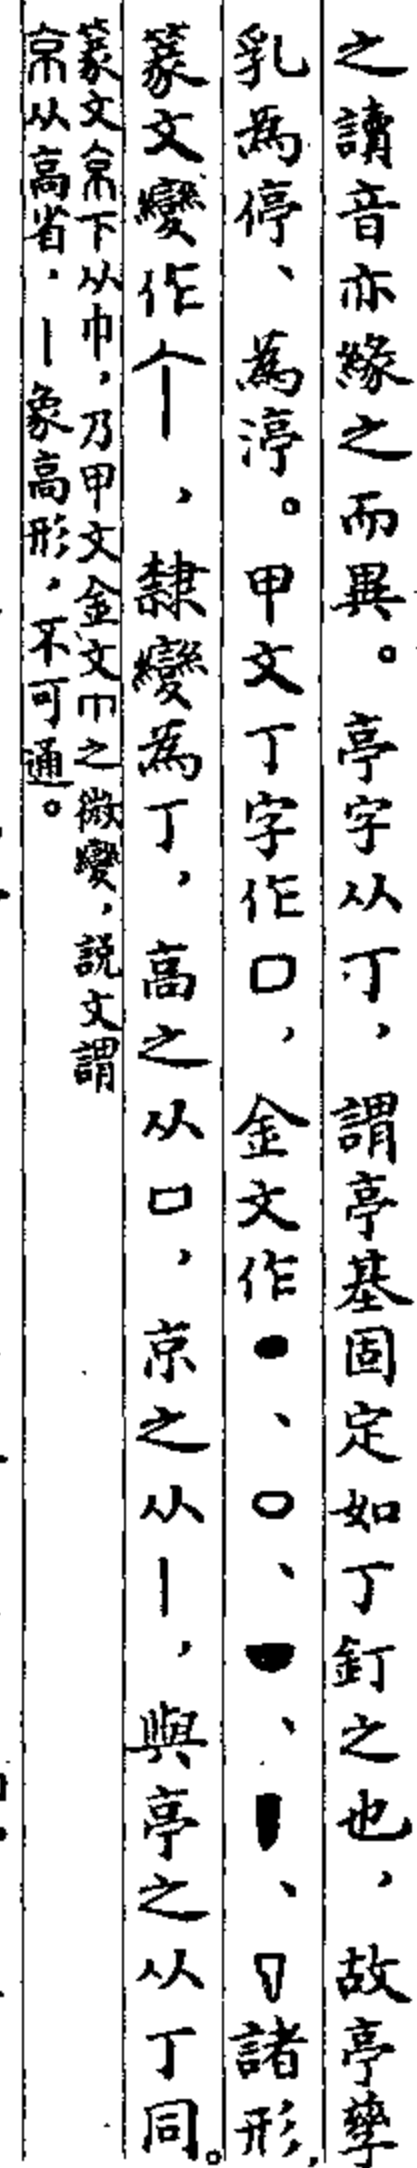 之讀音亦緣之而異。亭字从丁，謂亭基固定如丁釘之也，故亭孳
乳為停、為渟。甲文丁字作口，金文作●、○、、、諸形，
篆文變作，隸變為丁，高之从口，京之从丨，與亭之从丁同。
篆文京下从巾，乃甲文金文之微變，説文謂
京从高省．丨象高形，不可通。